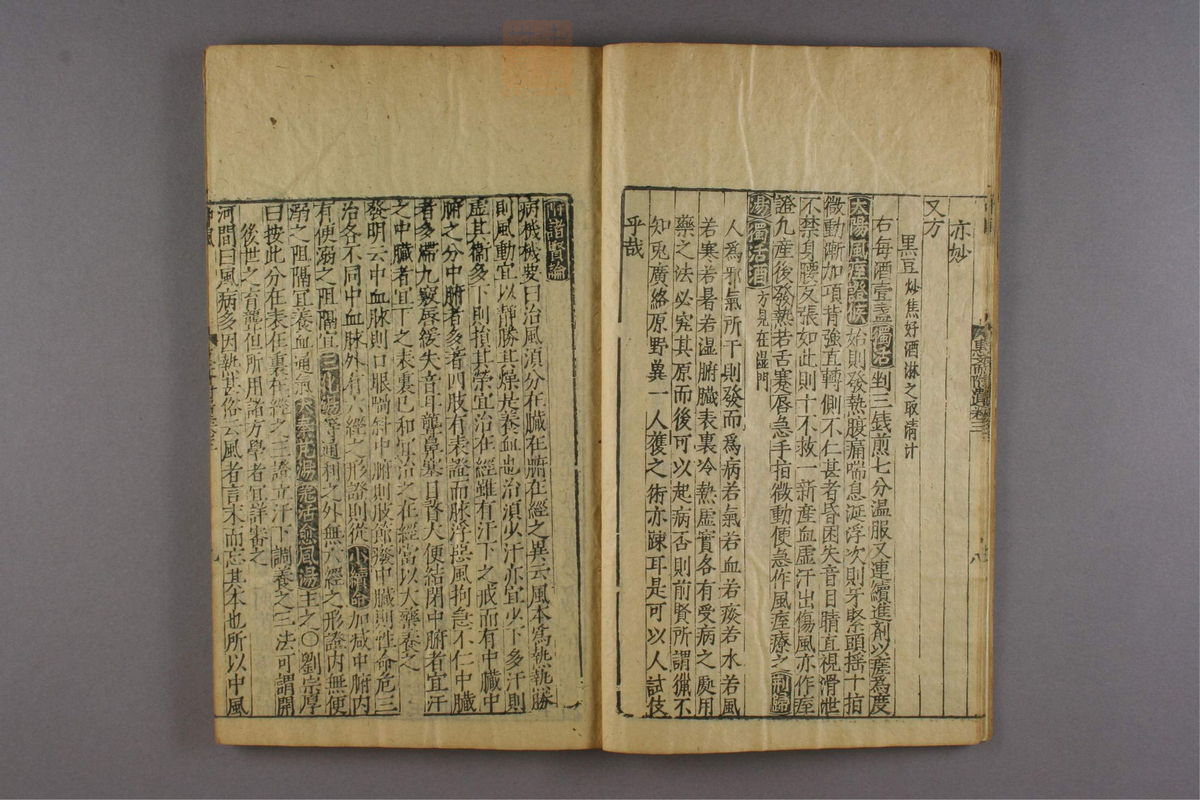 亦妙
又方
黑豆炒焦好酒淋之取清汁
右每酒壹盞獨活剉三錢煎七分温服又連續進劑以瘥為度
太陽風痓證候始則發熱腹痛喘息涎浮次則牙緊頭搖十指
微動漸加項背強直轉側不仁甚者昏困失音目睛直視滑泄
不禁身腰反張如此則十不救一新産血虛汗出傷風亦作痓
證凡産後發熱若舌蹇唇急手指微動便急作風痓療之荊歸
湯獨活酒方見在濕門
人為邪氣所干則發而為病若氣若血若痰若水若風
若寒若暑若濕腑臟表裏冷熱虛實各有受病之處用
藥之法必究其原而後可以起病否則前賢所謂獵不
知兔廣絡原野冀一人獲之術亦踈耳是可以人試伎
乎哉
八
附諸賢論
病機機要曰治風須分在臟在腑在經之異云風本寫熱熱勝
則風動宜以靜勝其燥共養血也治須少汗亦宜少下多汗則
虛其衛多下則損其榮宜治在經雖有汗下之戒而有中臟中
腑之分中腑者多著四肢有表證而脉浮惡風拘急不仁中臟
者多滯九竅唇緩失音耳聾鼻塞目瞀大便結閉中腑者宜汗
之中臟者宜下之表裏已和宜治之在經當以大藥養之
發明云中血脉則口眼喎斜中腑則肢節廢中臟則性命危三
治各不同中血脉外有六經之形證則從小續命加减中腑内
有便溺之阻隔宜三化湯等通利之外無六經之形證内無便
溺之阻隔宜養血通氣大秦艽湯羌活愈風湯主之○劉宗厚
曰按此分在表在裏在經之三證立汗下調養之三法可謂開
後世之盲聾但所用諸方學者宜詳審之
河間曰風病多因熱甚俗云風者言末而忘其本也所以中風
九